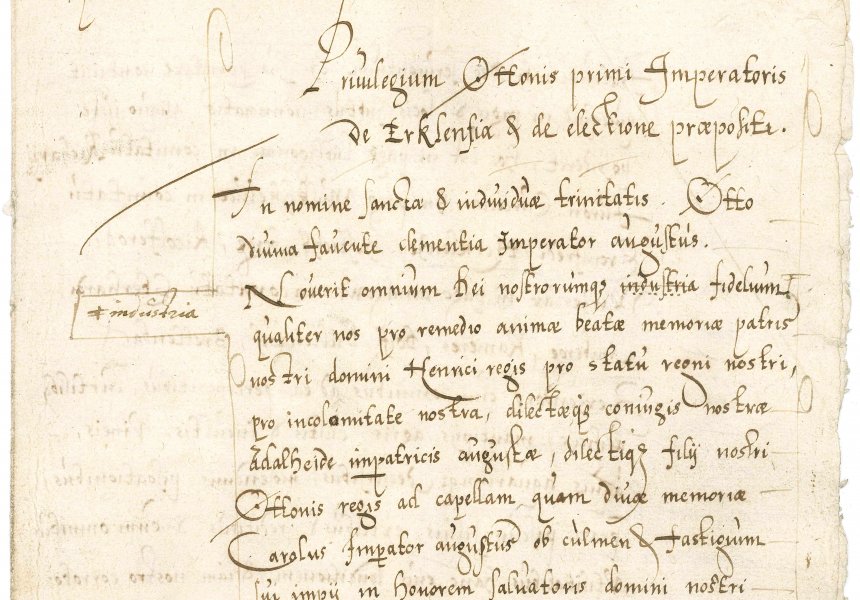 Priuilegium Ottonis primi Imperatoris
De Erklensia & de electione præpositi.
In nomine sanctæ & indiuiduæ trinitatis. Otto
diuina fauente clementia Imperator augustus.
Nouerit omnium Dei nostrorumq; industria fidelium,
industria
qualiter nos pro remedio animæ beatæ memoriæ patris
nostri domini Henrici regis pro statu regni nostri,
pro incolomitate nostra, dilectæq; coniugis nostræ
Adalheide impatricis augustæ, dilectiq; filij nostri
Ottonis regis ad capellam quam diuæ memoriæ
Carolus Imperator augustus ob culmen & fastigium
sui impij in honorem saluatoris domini nostri